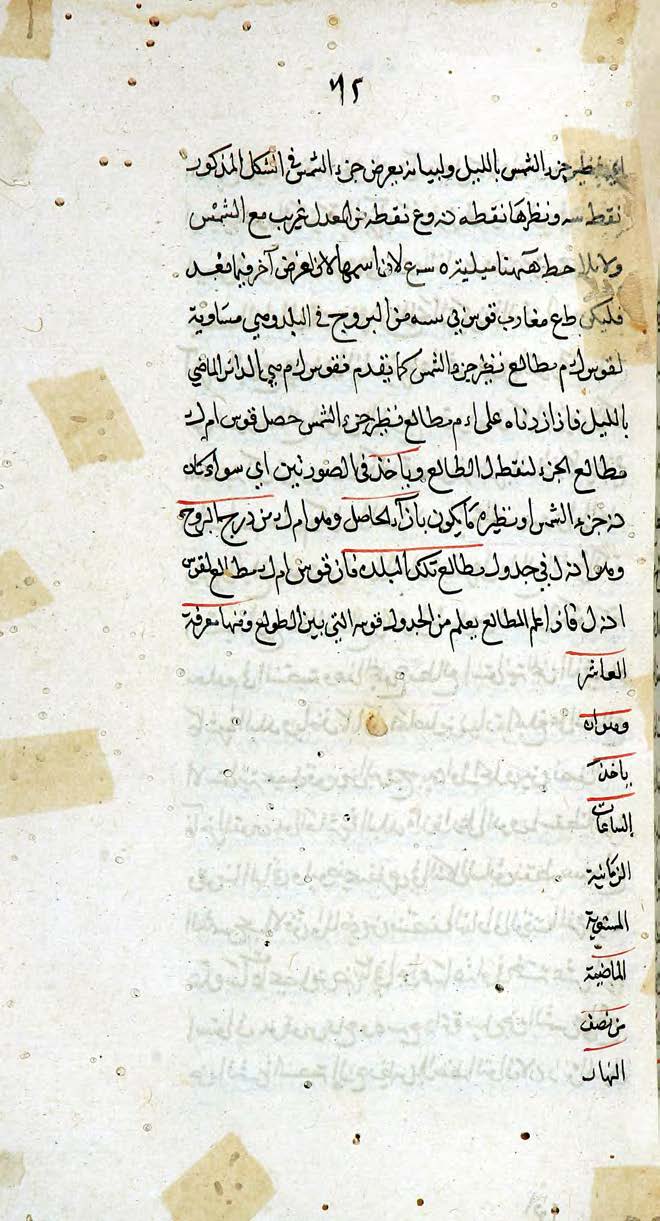 ٦٢
جزء الشمس بالليل ولبيانه بعرض جزء الشمس في الشكل المذكور
نقطه سه ونظرها نقطه نه وع نقطه من المعدل تغرب مع الشمس
ولا حط ههنا ميلية ه س ع لان اسمها لاتى لغرض آخر فيما بعد
فليكن ط ع مغارب قوس ني سه من البروج في البلد وهي مساوية
لقوس ا م مطالع نظير جزء الشمس كما تقدم فقوس ل م هي الدائر الماضي
بالليل فاذا زدناه على ا م مطالع نظير جزء الشمس حصل قوس ا م ل
مطالع الجزء لنقطه ل الطالع وياخذ في الصورتين اي سواء كان
نه جزء الشمس او نظيره ما يكون بازآء الحاصل وهو ا م ل من درج البروج
وهو ا نه ل في جدول مطالع تلك البلده فان قوس ا م ل مطالع لقوس
ا نه ل فاذا علم المطالع يعلم من الجدول قوسه التي بين الطولع ومنها معرفة
العاشر
وهو ان
ياخذ
الساعات
الزمانية
المستوية
الماضية
من نصف
النهار